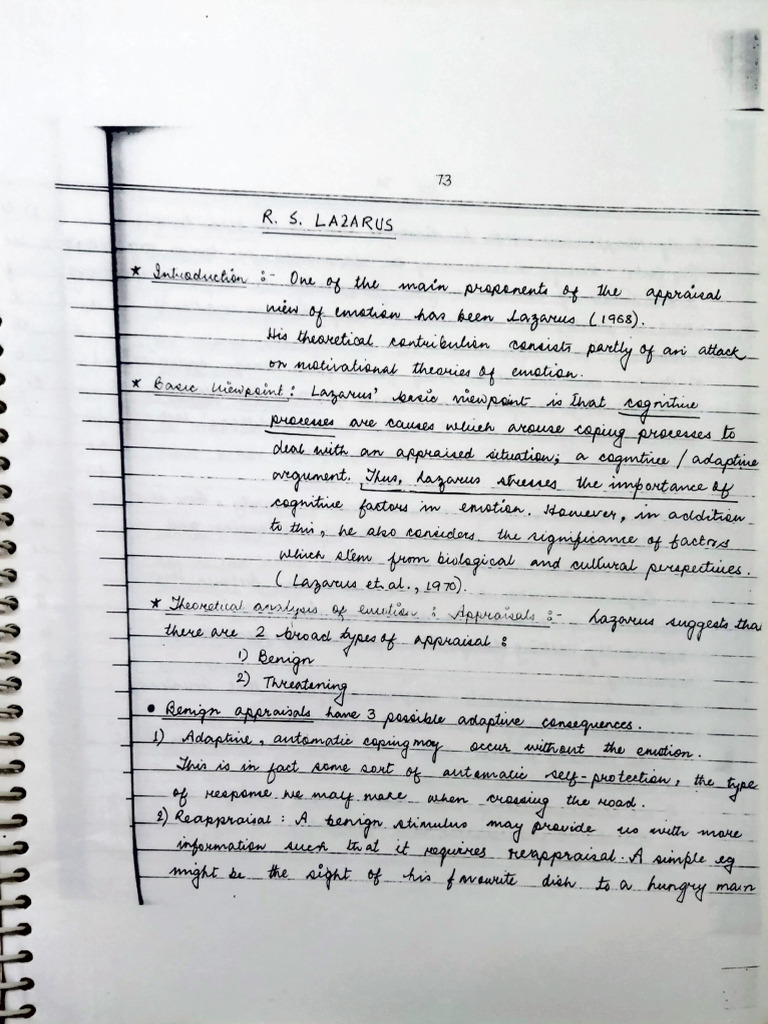 73
R. S. LAZARUS
* Introduction :- One of the main proponents of the appraisal
view of emotion has been Lazarus (1968).
His theoretical contribution consists partly of an attack
on motivational theories of emotion.
* Basic Viewpoint : Lazarus' basic viewpoint is that cognitive
processes are causes which arouse coping processes to
deal with an appraised situation; a cognitive / adaptive
argument. Thus, Lazarus stresses the importance of
cognitive factors in emotion. However, in addition
to this, he also considers the significance of factors
which stem from biological and cultural perspectives.
( Lazarus et.al., 1970).
* Theoretical analysis of emotion : Appraisals :- Lazarus suggests tha
there are 2 broad types of appraisal :
1) Benign
2) Threatening
• Benign appraisals have 3 possible adaptive consequences.
1) Adaptive, automatic coping may occur without the emotion.
This is in fact some sort of automatic self-protection, the type
of response we may make when crossing the road.
2) Reappraisal : A benign stimulus may provide us with more
information such that it requires reappraisal. A simple eg
might be the sight of his favourite dish to a hungry man